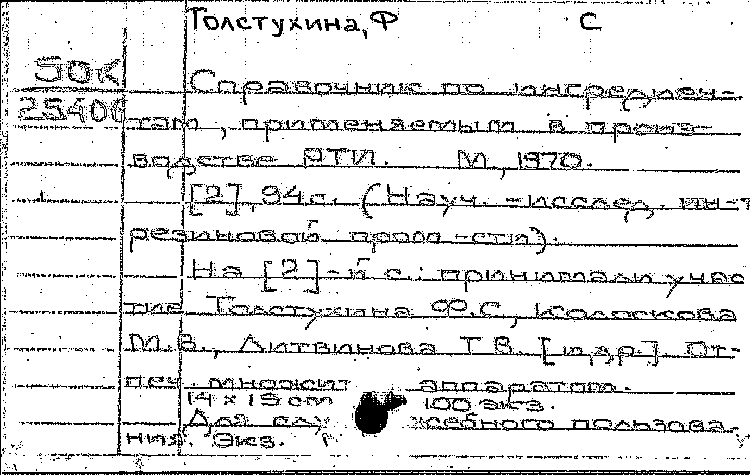 Толстухина, Ф С
50К
25406
Справочник по ингредиен-
там, применяемым в произ-
водстве РТИ. М., 1970.
[2], 94с. (Науч.-исслед. ин-т
резиновой пром-сти).
На [2]-й с.: принимали учас
тие Толстухина Ф.С, Колоскова
М.В., Литвинова Т В. [и др.] От-
печ. множит аппаратом.
14 х 19 cm 100 экз.
Для слу жебного пользова-
ния. Экз.